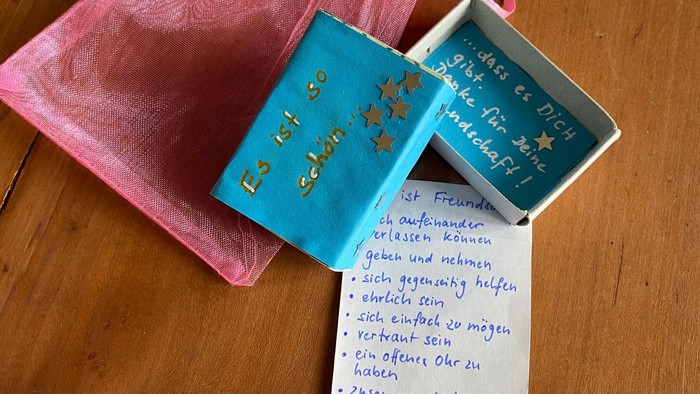 Es ist so
schön...
...dass es DICH
gibt.
Danke für Deine
Freundschaft!
ist Freundsch
ch aufeinander
verlassen können
geben und nehmen
• sich gegenseitig helfen
• ehrlich sein
• sich einfach zu mögen
• vertraut sein
• ein offenes Ohr zu
haben